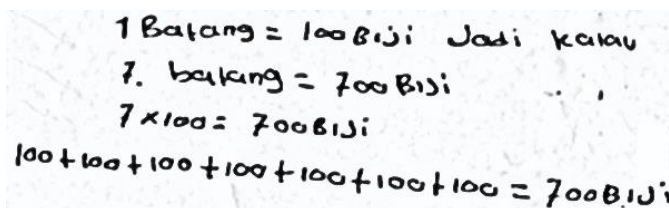 1 Batang = 100 Biji Jadi kalau
7. batang = 700 Biji
7 x 100 = 700 Biji
100 + 100 + 100 + 100 + 100 + 100 + 100 = 700 Biji